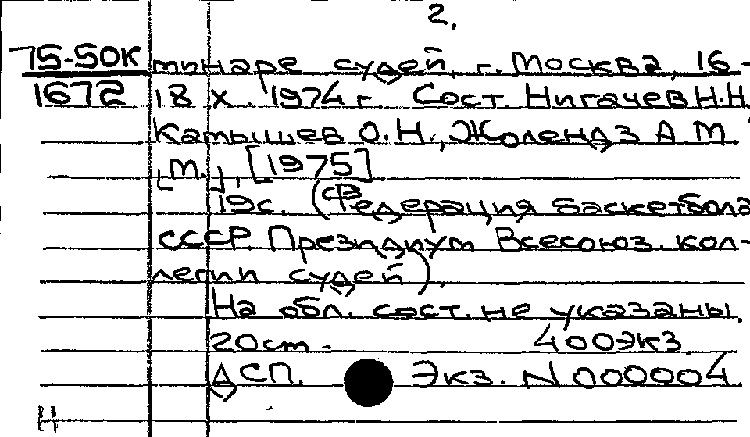 2.
75-50К минаре судей, г. Москва, 16-
1672 18 X. 1974 г. Сост. Нигачев Н.Н.
Камышев О.Н., Жолендз А.М.
[М.], [1975]
19с. (Федерация баскетбола
СССР. Президиум Всесоюз. кол-
легии судей).
На обл. сост. не указаны.
20см. 400экз.
ДСП. Экз. N 000004.